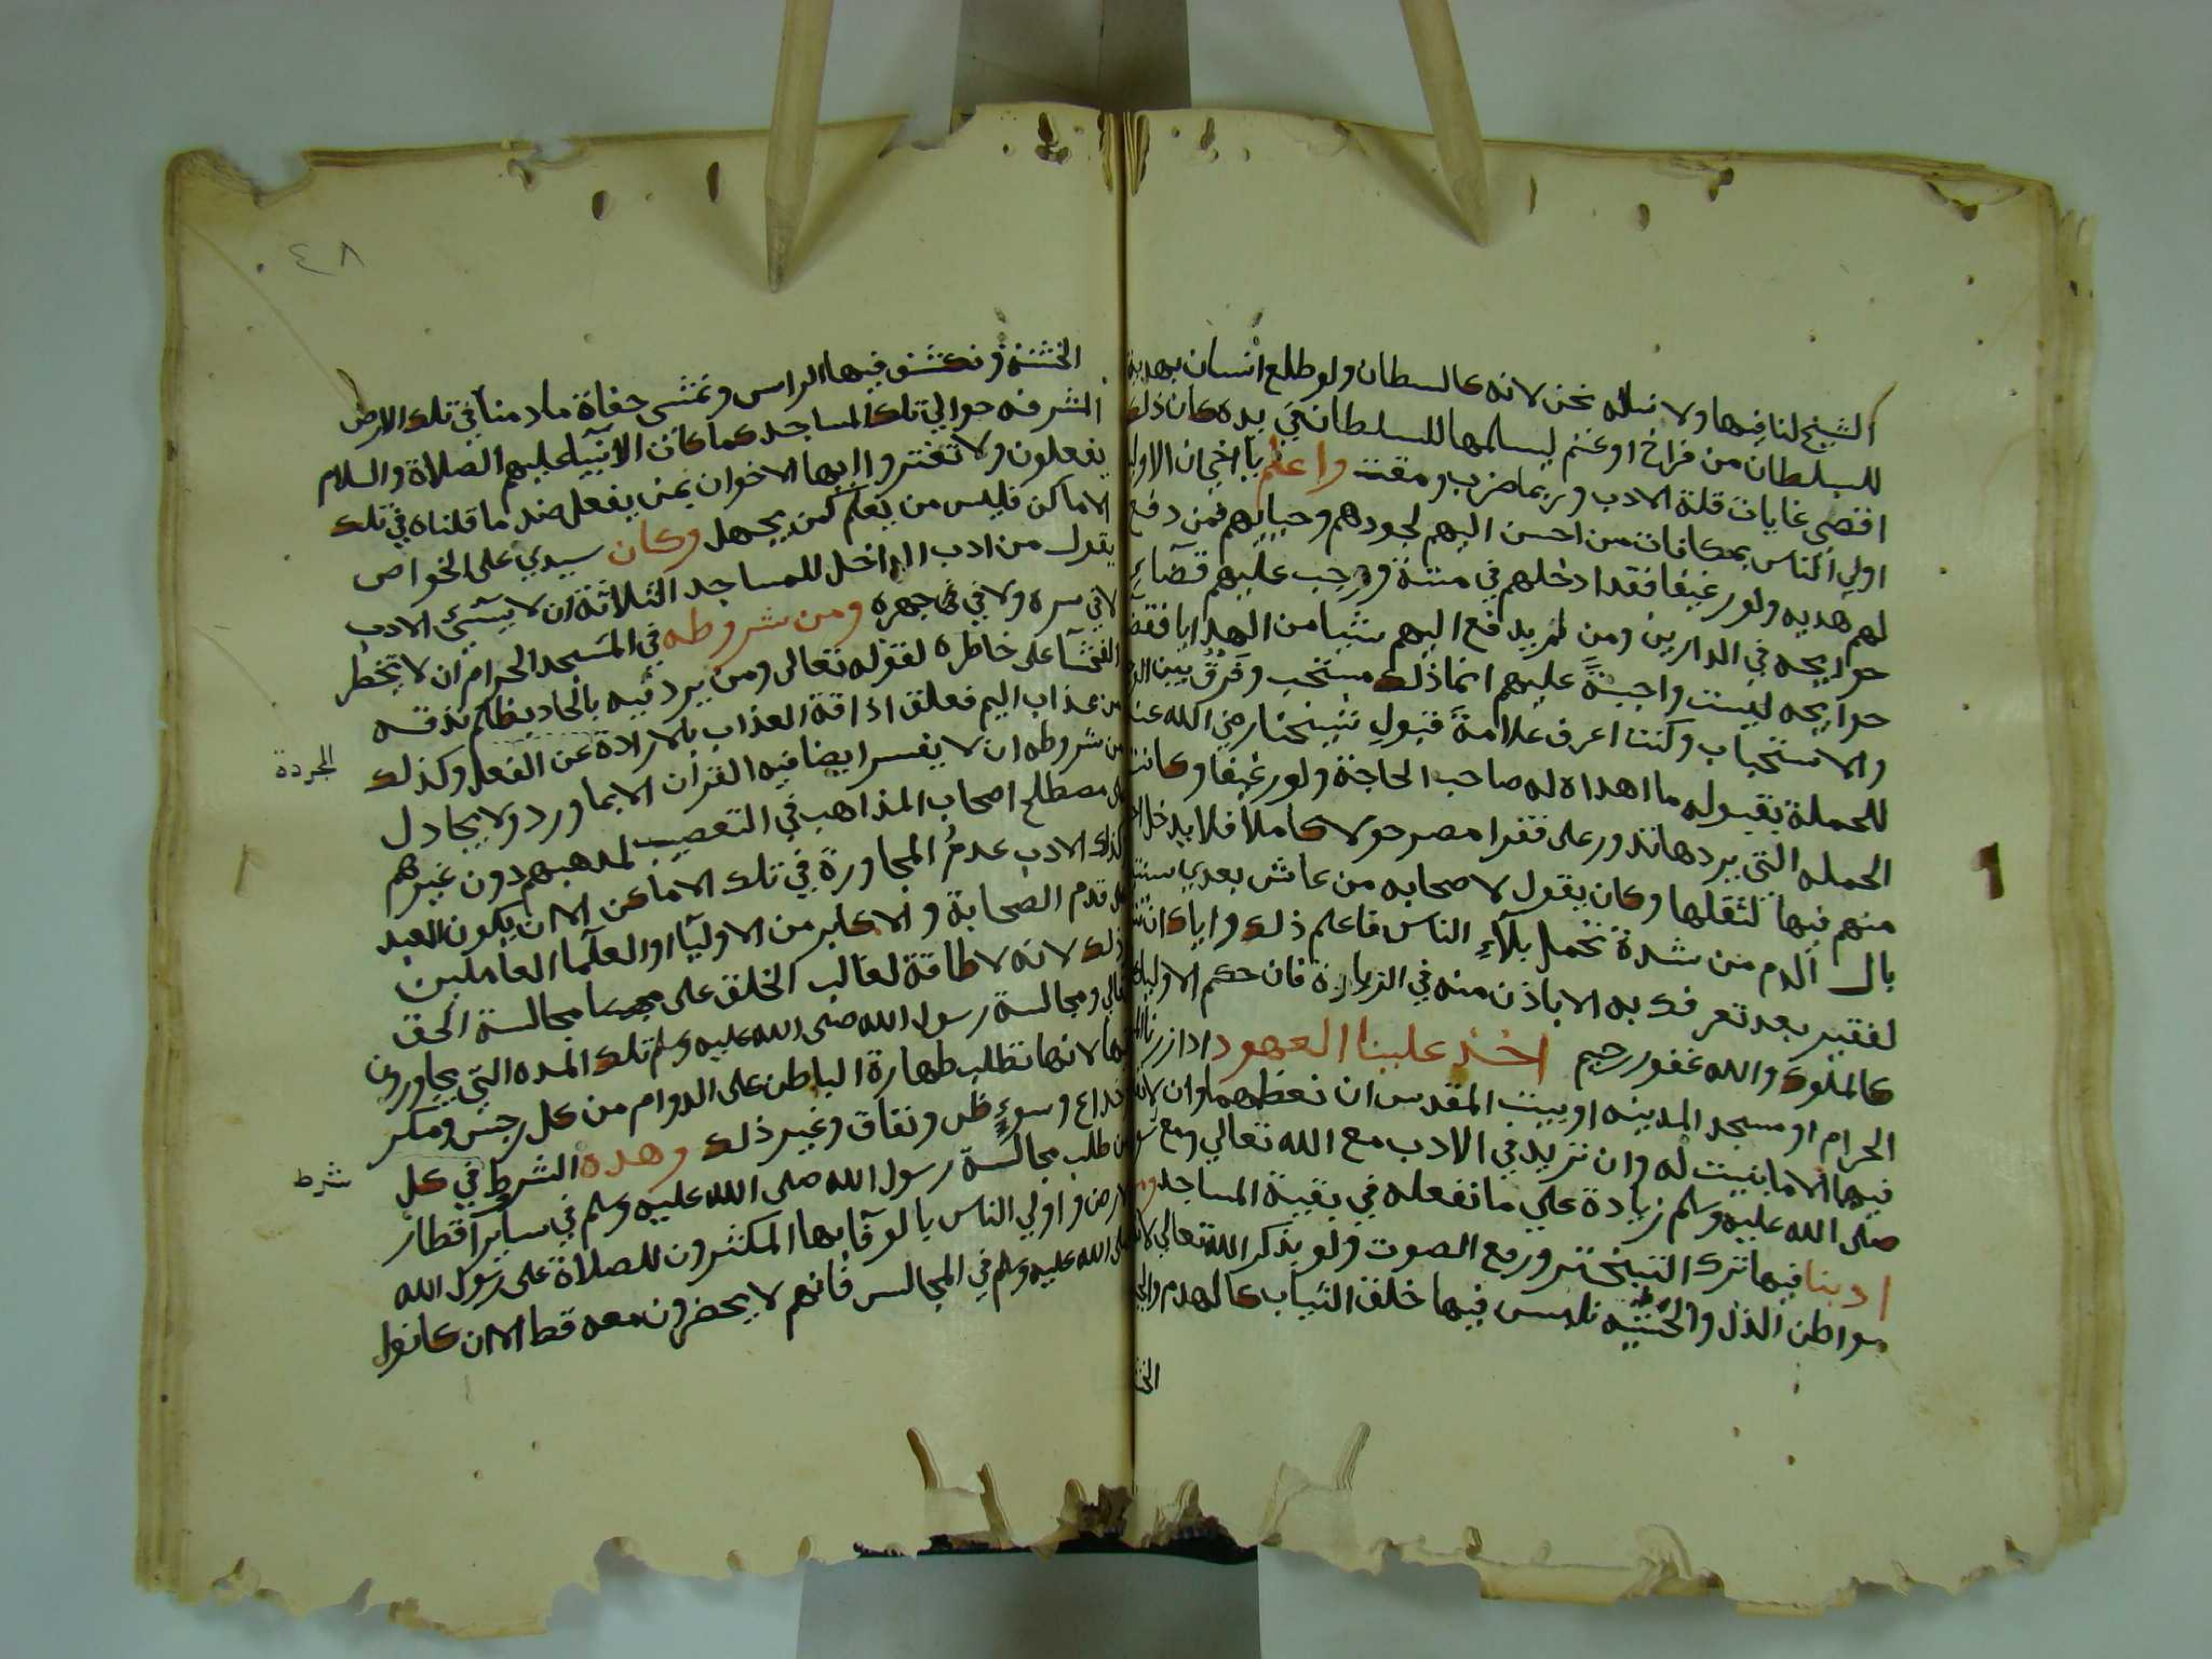 الشيخ لنا فيها ولا نساله نحن لانه كالسلطان ولو طلع انسان بهدية
للسلطان من فراخ او غنم ليسلمها للسلطان في يده كان ذلك
اقصى غايات قلة الادب وربما ضرب ومقت واعلم يا اخي ان الاوليا
اولي الناس بمكافات من احسن اليهم لجودهم وحيايهم فمن دفع
لهم هديه ولو رغيفا فقد ادخلهم في منته ووجب عليهم قضاء
حوايجه في الدارين ومن لم يدفع اليهم شيئا من الهدايا فقضا
حوايجه ليست واجبة عليهم انما ذلك مستحب وفرق بين
والاستحباب وكنت اعرف علامة قبول شيخنا رضي الله عنه
للحملة بقبوله ما اهداه له صاحب الحاجة ولو رغيفا وكانت
الحمله التي يردها تدور على فقرا مصر حولا كاملا فلا يدخل
منهم فيها لثقلها وكان يقول لاصحابه من عاش بعدي سنتين
بال الدم من شدة تحمل بلاء الناس فاعلم ذلك واياك ان
لفقير بعد تعرفك به الا باذن منه في الزيارة فان حكم الاوليا
كالملوك والله غفور رحيم اخذ علينا العهود اذا زرنا
الحرام او مسجد المدينه او بيت المقدس ان نعظمها وان لا
فيها الا ما بنيت له وان نزيد في الادب مع الله تعالي ومع
صلى الله عليه وسلم زيادة علي ما نفعله في بقية المساجد ومن
ادبنا فيها ترك التبختر ورفع الصوت ولو بذكر الله تعالي
مواطن الذل والخشيه نلبس فيها خلق الثياب كالهدم
الخش
٤٨
الخشنة ونكشف فيها الراس ونمشي حفاة ما دمنا في تلك الارض
المشرفه حوالي تلك المساجد كما كانت الانبياء عليهم الصلاة والسلام
يفعلون ولا تغتروا ايها الاخوان بمن يفعل ضد ما قلناه في تلك
الاماكن فليس من يعلم كمن يجهل وكان سيدي على الخواص
يقول من ادب الداخل للمساجد الثلاثة ان لا يسئ الادب
لا في سره ولا في جهره ومن شروطه في المسجد الحرام ان لا يخطر
الفحشا على خاطره لقوله تعالى ومن يرد فيه بالحاد بظلم نذقه
من عذاب اليم فعلق اذاقة العذاب بالارادة عن الفعل وكذلك
المجردة
من شروطه ان لا يفسر ايضا فيه القران الا بما ورد ولا يجادل
على مصطلح اصحاب المذاهب في التعصيب لمذهبهم دون غيرهم
كذلك الادب عدم المجاورة في تلك الاماكن الا ان يكون العبد
على قدم الصحابة والاكابر من الاوليا او العلما العاملين
ذلك لانه لا طاقة لغالب الخلق على مجالسة الحق
تعالي ومجالسة رسول الله صلى الله عليه وسلم تلك المده التي يجاورون
فيها لانها تطلب طهارة الباطن على الدوام من كل رجس ومكر
خداع وسوء ظن ونفاق وغير ذلك وهذه الشرط في كل
شرط
من طلب مجالسة رسول الله صلى الله عليه وسلم في ساير اقطار
الارض واولي الناس بالوفا بها المكثرون للصلاة على رسول الله
صلى الله عليه وسلم في المجالس فانهم لا يحضرون معه قط الا ان كانوا